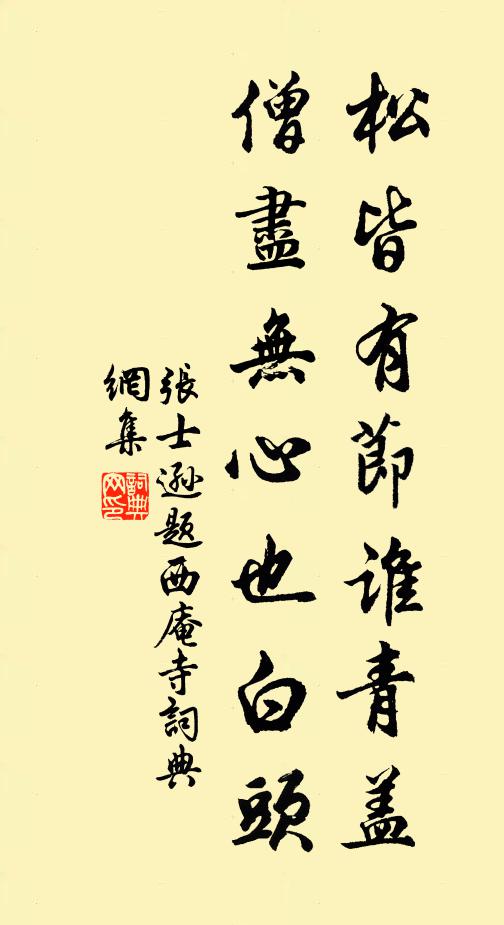 松皆有節誰青盖
僧盡無心也白頭
張士遜題西庵寺詞典
網集
詞典
网印